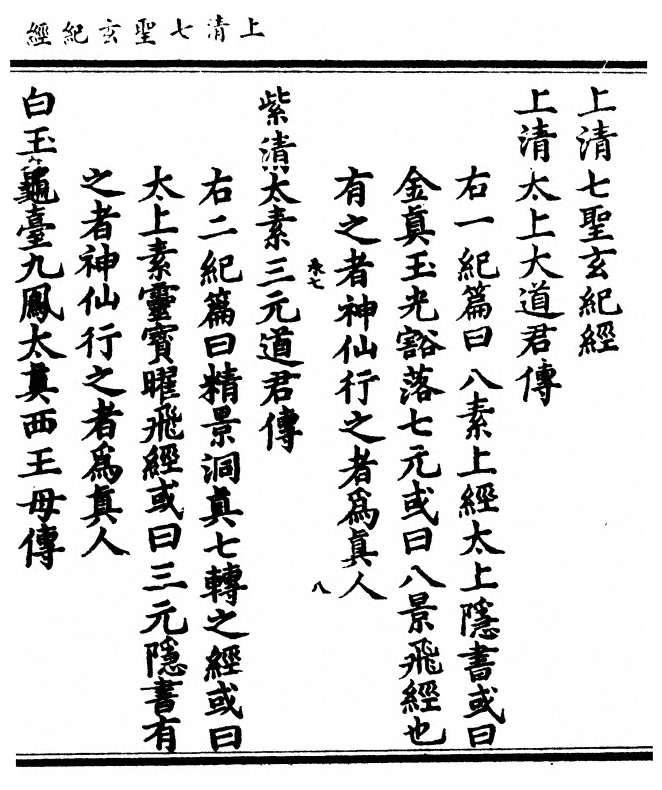 上清七聖玄紀經
上清七聖玄紀經
上清太上大道君傳
右一紀篇曰八素上經太上隱書或曰
金真玉光豁落七元或曰八景飛經也
有之者神仙行之者爲真人
承七
八
紫清太素三元道君傳
右二紀篇曰精景洞真七轉之經或曰
太上素靈寶曜飛經或曰三元隱書有
之者神仙行之者爲真人
白玉龜臺九鳳太真西王母傳